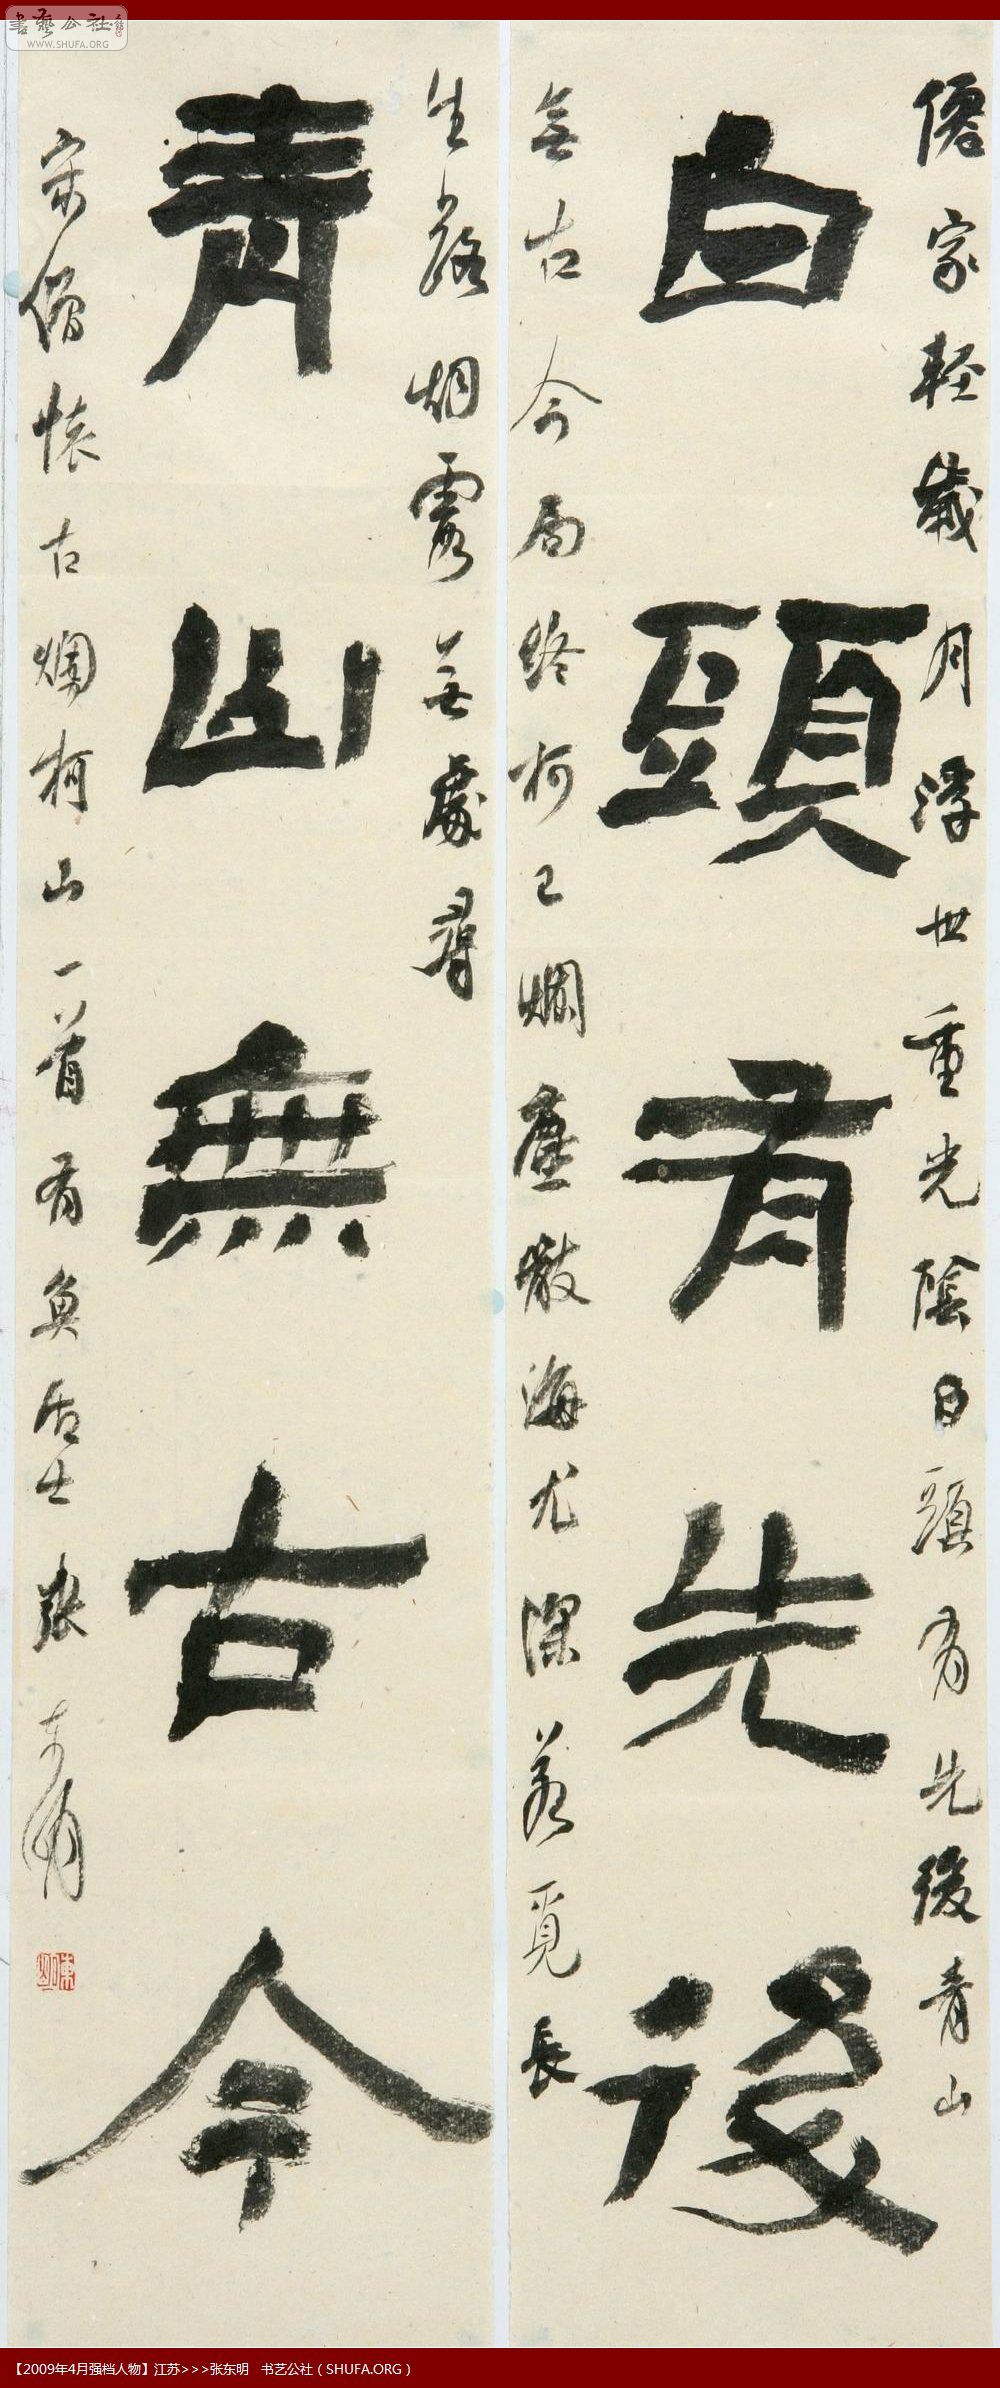 書藝公社
WWW.SHUFA.ORG
僊家輕歲月浮世重光陰白頭有先後青山
白頭有先後
無古今局終柯已爛塵散海尤深若覓長
生路烟霞無處尋
青山無古今
宋僧懷古爛柯山一首有魚居士張東明
【2009年4月强档人物】江苏>>>张东明 书艺公社（SHUFA.ORG）